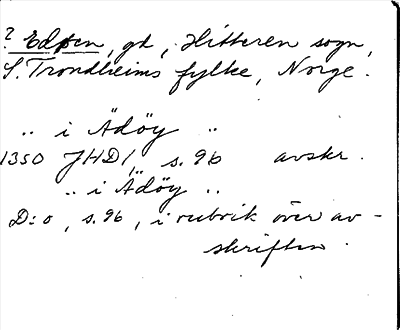 ? Edøen, gd, Hitteren sogn,
S. Trondheims fylke, Norge.
.. i Ädöy ..
1350 JHD1 s. 96 avskr.
.. i Ädöy ..
D:o, s. 96, i rubrik över av-
skriften.